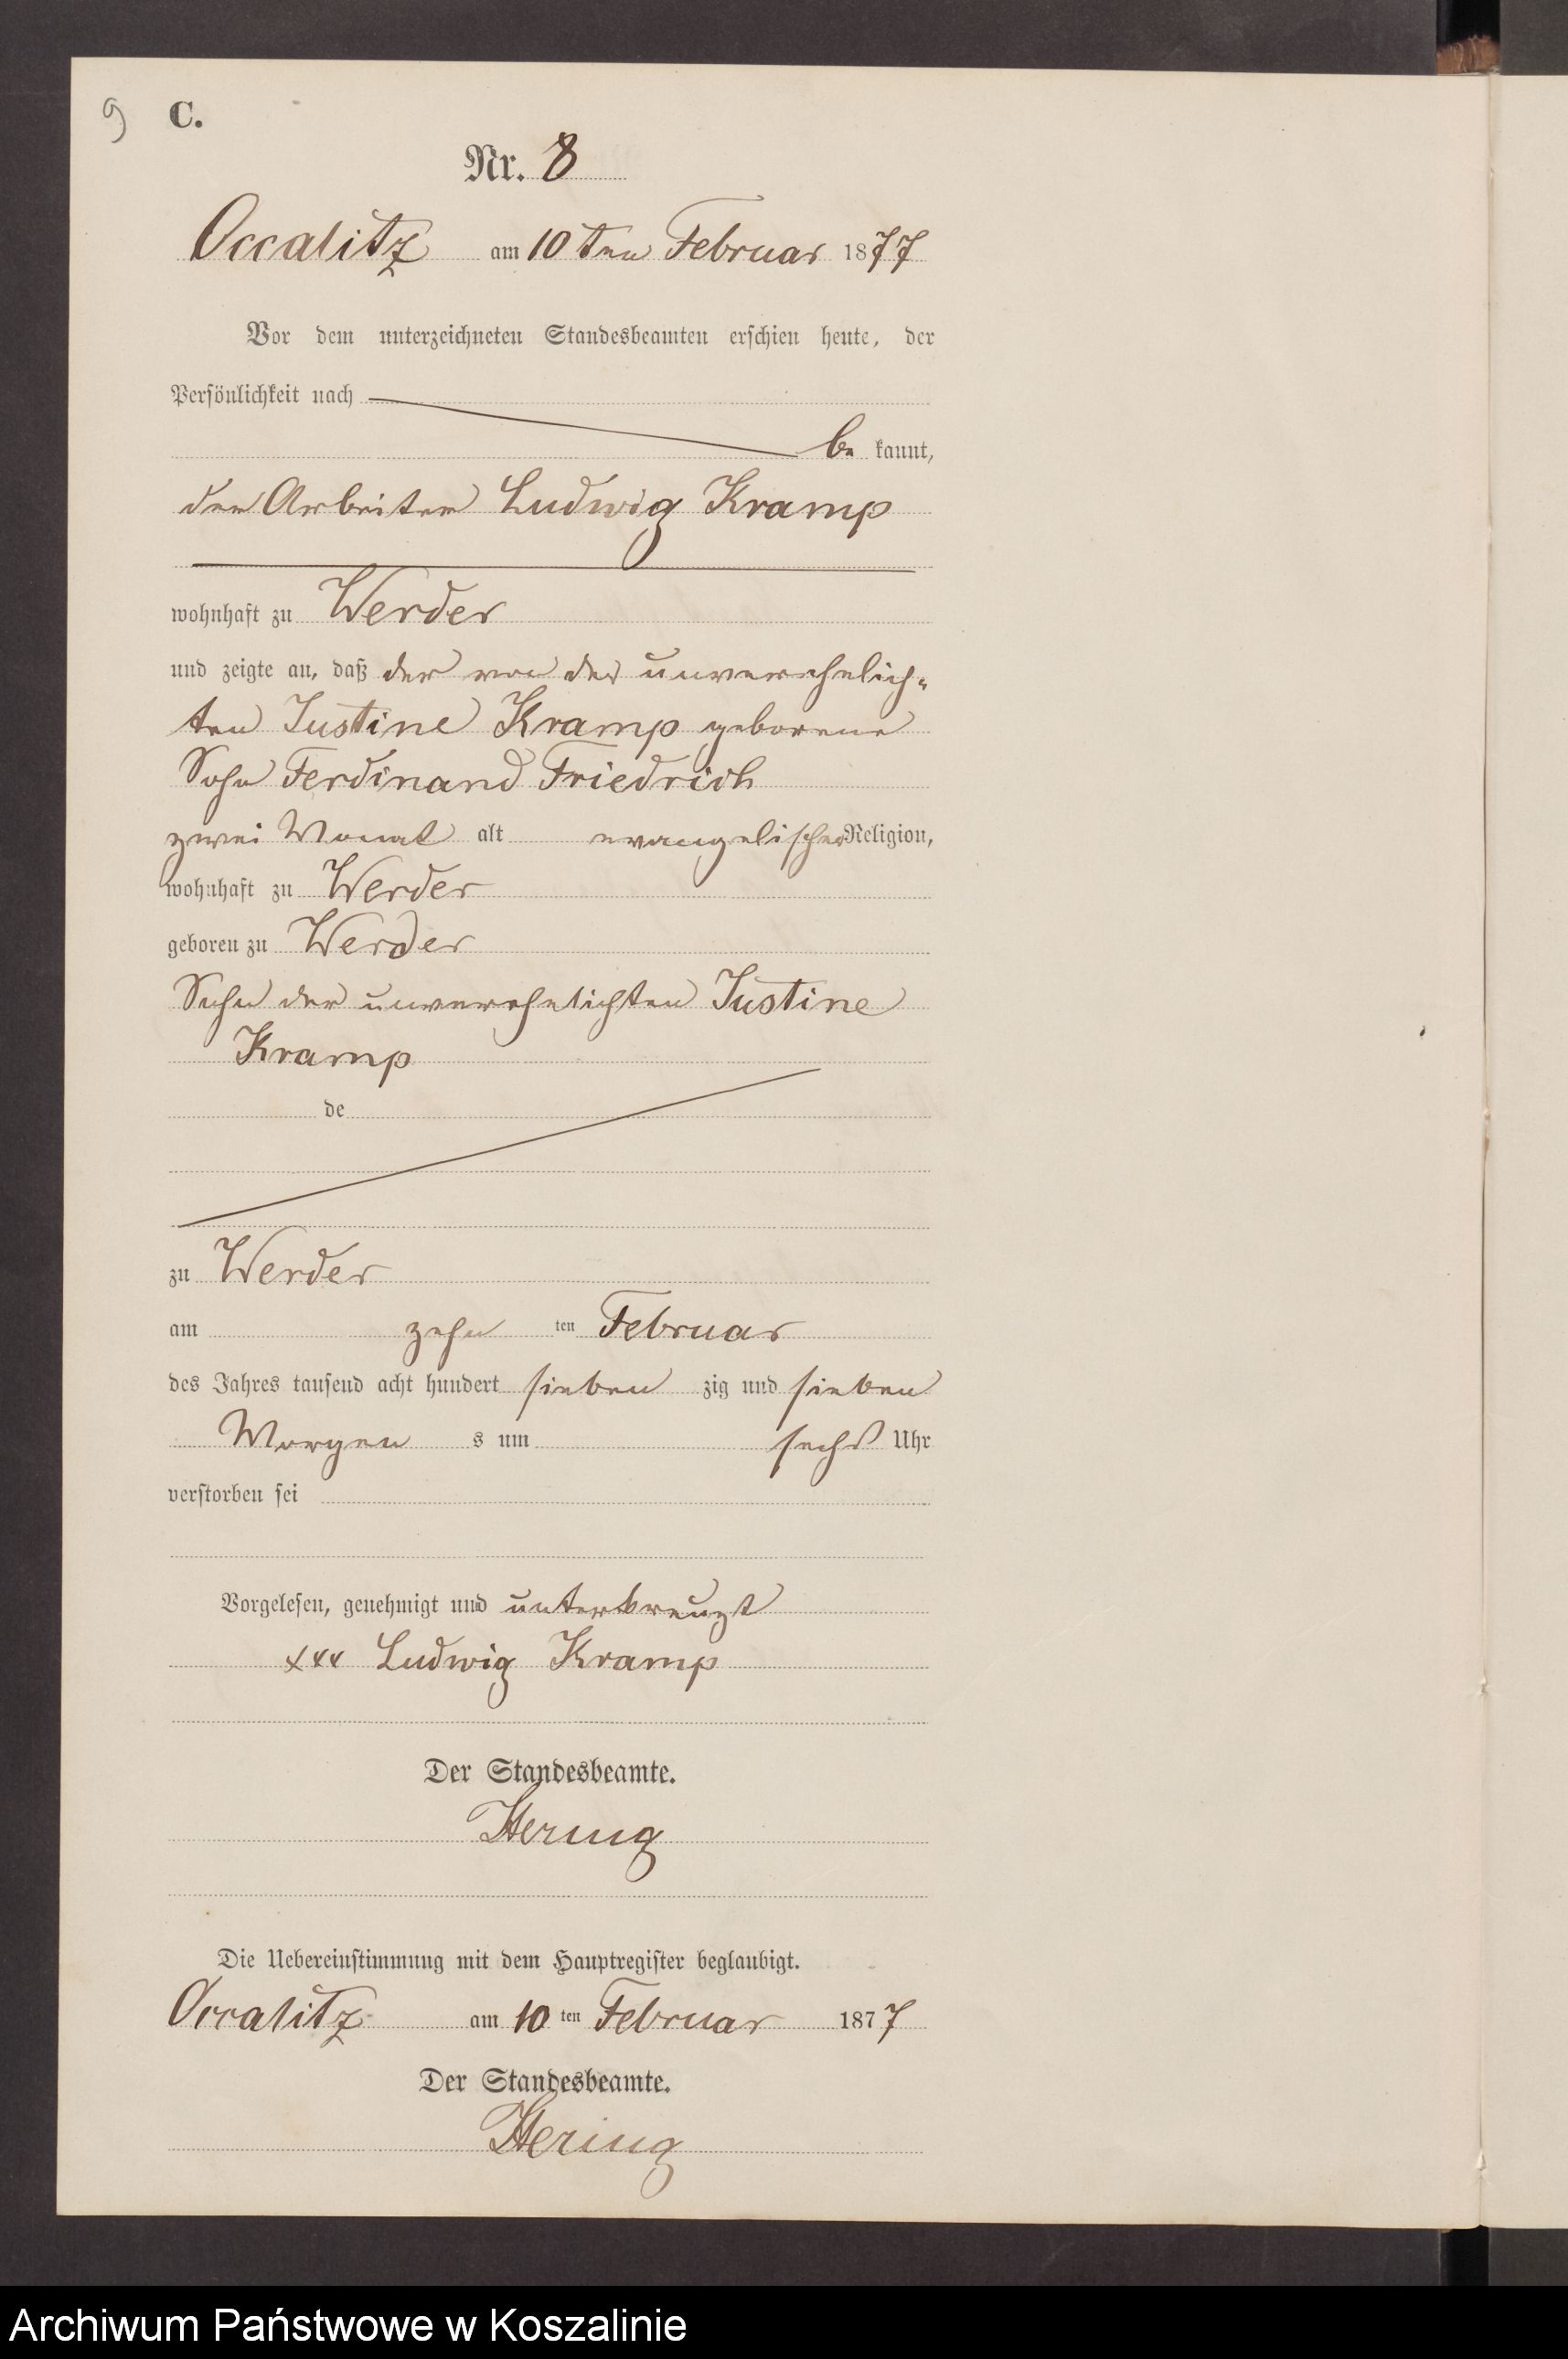 9 C.
Nr. 8
Occalitz am 10ten Februar 1877
Vor dem unterzeichneten Standesbeamten erschien heute, der
Persönlichkeit nach
be kannt,
der Arbeiter Ludwig Kramp
wohnhaft zu Werder
und zeigte an, daß der von der unverehelich-
ten Justine Kramp geborene
Sohn Ferdinand Friedrich
zwei Monat alt evangelischer Religion,
wohnhaft zu Werder
geboren zu Werder
Sohn der unverehelichten Justine
Kramp
de
zu Werder
am zehn ten Februar
des Jahres tausend acht hundert sieben zig und sieben
Morgen s um sechs Uhr
verstorben sei
Vorgelesen, genehmigt und unterkreuzt
xxx Ludwig Kramp
Der Standesbeamte.
Hering
Die Uebereinstimmung mit dem Hauptregister beglaubigt.
Occalitz am 10 ten Februar 1877
Der Standesbeamte.
Hering
Archiwum Państwowe w Koszalinie